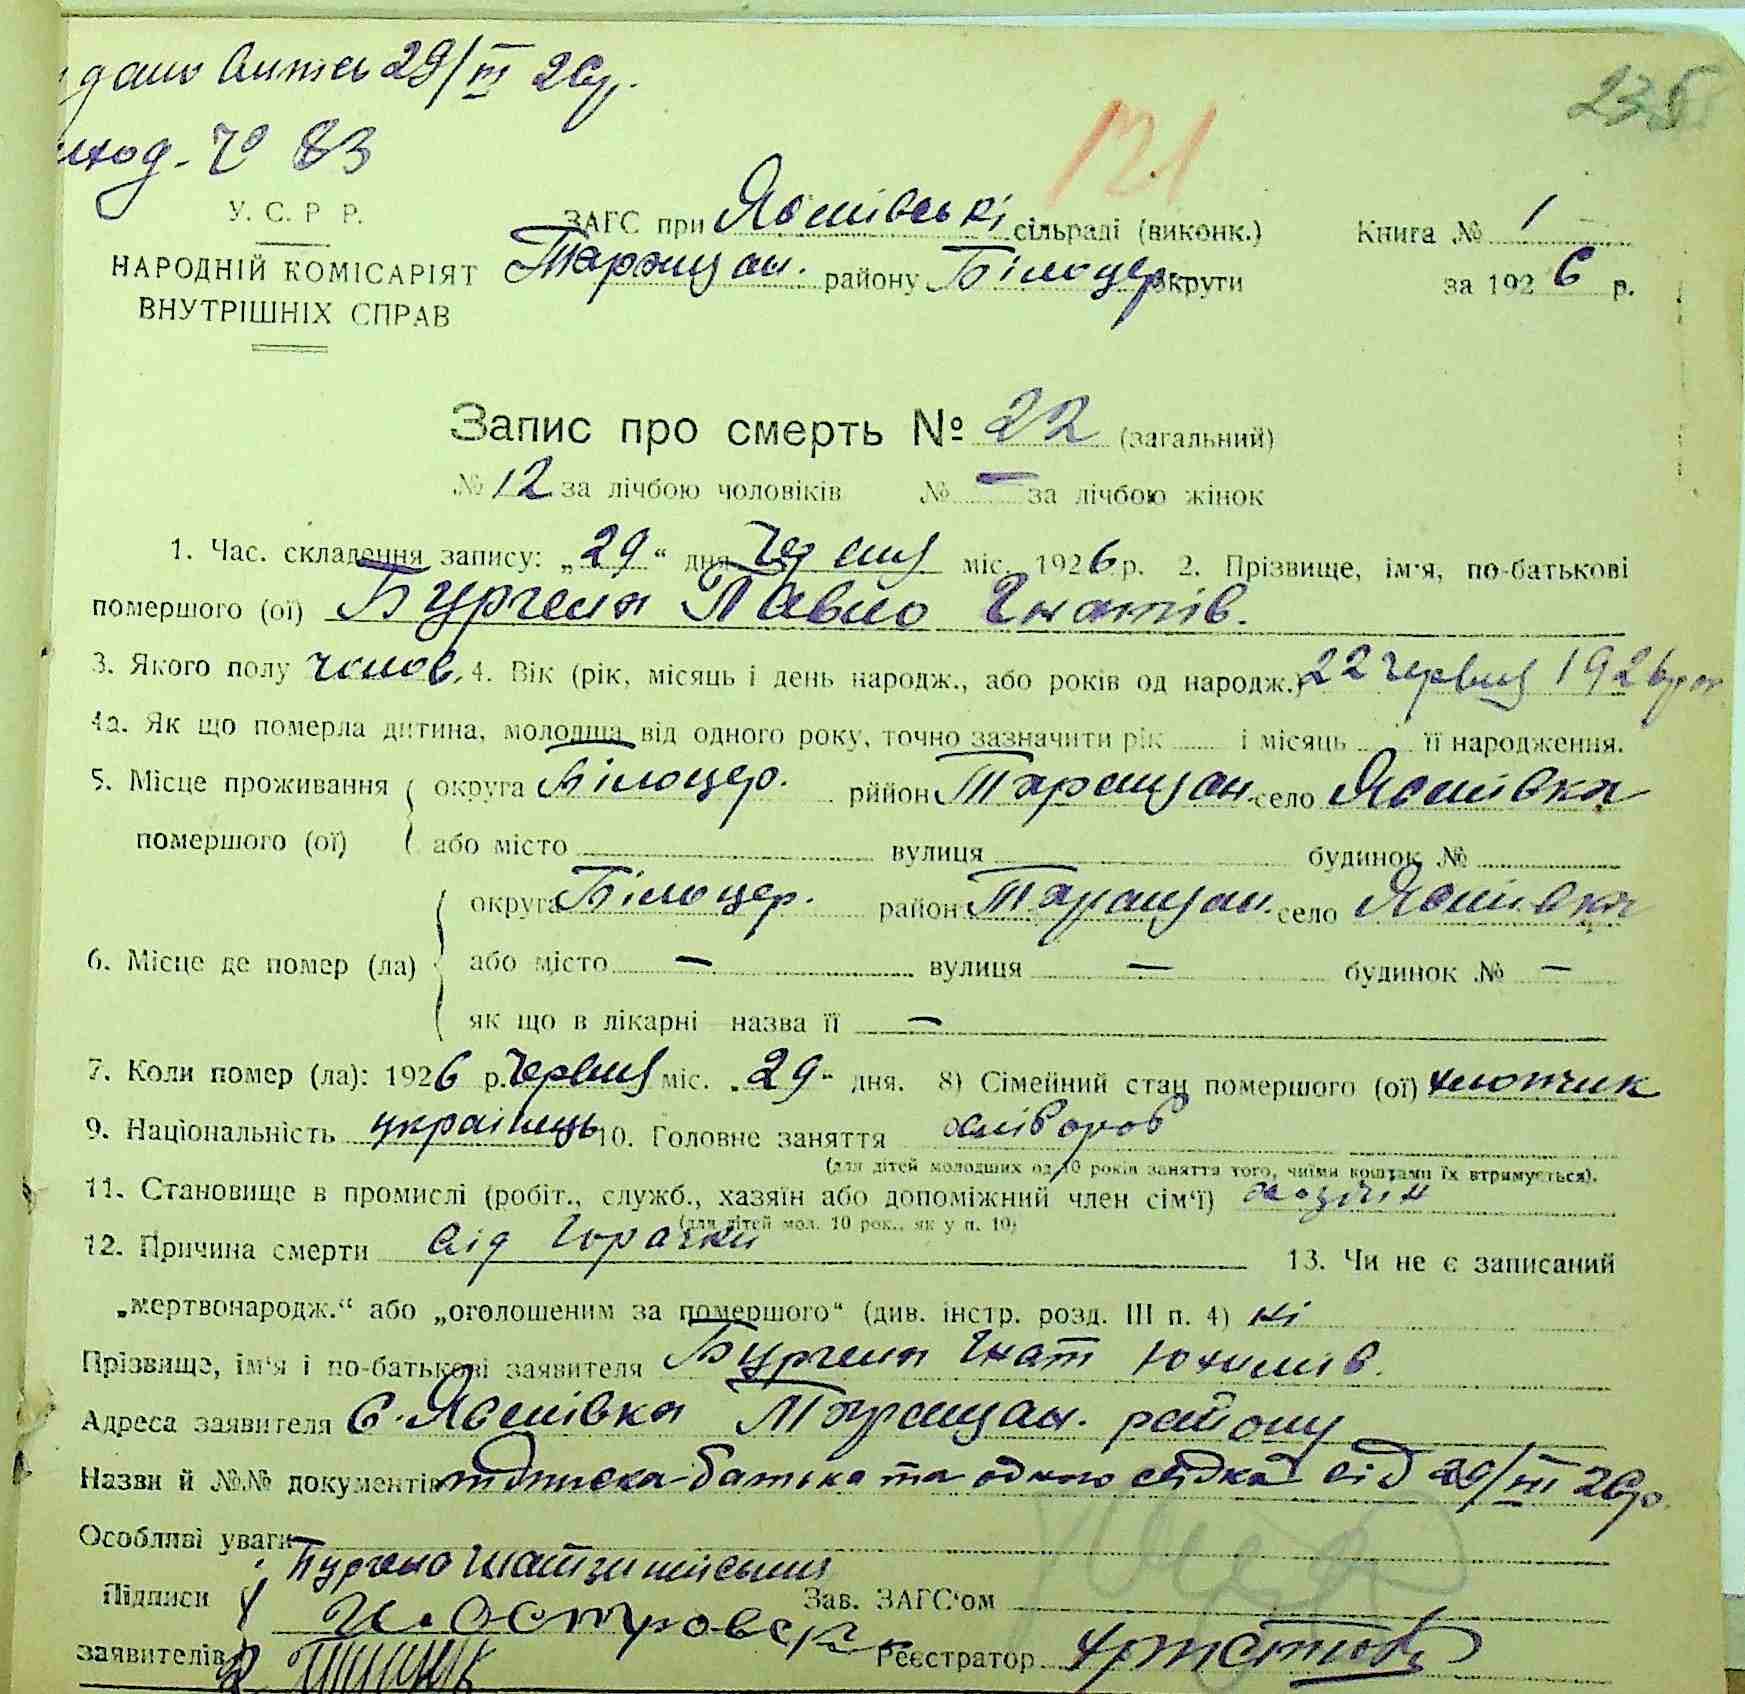 дано витяг 29/III 26р.
иход. Ч 83
235
121
У. С. Р Р.
НАРОДНІЙ КОМІСАРІЯТ
ВНУТРІШНІХ СПРАВ
ЗАГС при Яснівські сільраді (виконк.)
Таращан. району Білоцер округи
Книга № 1
за 1926 р.
Запис про смерть № 22 (загальний)
№ 12 за лічбою чоловіків № – за лічбою жінок
1. Час. складення запису: „29“ дня міс. 1926 р. 2. Прізвище, ім‘я, по-батькові
помершого (ої) Бургела Павло Гнатів.
3. Якого полу чолов. 4. Вік (рік, місяць і день народж., або років од народж.) 22 червня 1926 р
4а. Як що померла дитина, молодша від одного року, точно зазначити рік і місяць її народження.
5. Місце проживання округа Білоцер. рййон Таращан. село Яснівка
помершого (ої) або місто вулиця будинок №
округа Білоцер. район Таращан. село Яснівка
6. Місце де помер (ла) або місто – вулиця – будинок № –
як що в лікарні назва її –
7. Коли помер (ла): 1926 р. червня міс. „29“ дня. 8) Сімейний стан помершого (ої) хлопчик
9. Національність українець 10. Головне заняття хлібороб
(для дітей молодших од 10 років заняття того, чиїми коштами їх втримується).
11. Становище в промислі (робіт., служб., хазяїн або допоміжний член сім‘ї) хазяїн
(для дітей мол. 10 рок., як у п. 10)
12. Причина смерти від горачки 13. Чи не є записаний
„мертвонародж.“ або „оголошеним за помершого“ (див. інстр. розд. III п. 4) ні
Прізвище, ім‘я і по-батькові заявителя Бургела Гнат Юхимів.
Адреса заявителя с. Яснівка Таращан. району
Назви й №№ документів підписка батька та одного свідка від 29/III 26р.
Особливі уваги
Підписи Бургела Гнат
Зав. ЗАГС‘ом
заявителів Островськ
Реєстратор